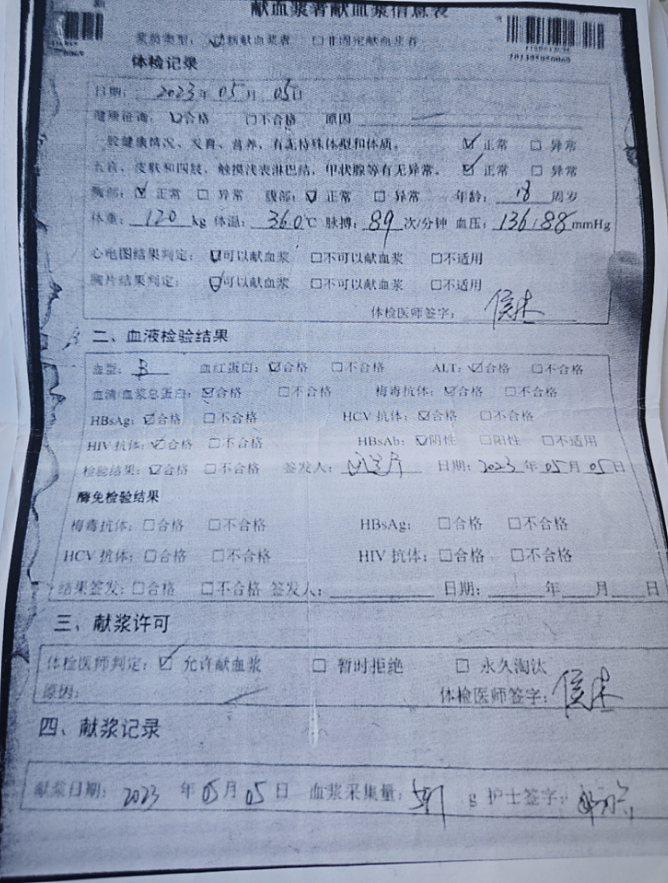 献血浆者献血浆信息表
浆员类型： ☑新献血浆者 □非固定献血浆者
体检记录
日期： 2023年 05月 05日
健康征询： ☑合格 □不合格 原因
一般健康情况、发育、营养，有无特殊体型和体质。 ☑正常 □异常
五官、皮肤和四肢，触摸浅表淋巴结，甲状腺等有无异常。 ☑正常 □异常
胸部：☑正常 □异常 腹部：☑正常 □异常 年龄： 18 周岁
体重： 120 kg 体温： 36.0℃ 脉搏： 89 次/分钟 血压： 136/88 mmHg
心电图结果判定： ☑可以献血浆 □不可以献血浆 □不适用
胸片结果判定： ☑可以献血浆 □不可以献血浆 □不适用
体检医师签字：
二、血液检验结果
血型： B 血红蛋白：☑合格 □不合格 ALT：☑合格 □不合格
血清/血浆总蛋白：☑合格 □不合格 梅毒抗体：☑合格 □不合格
HBsAg：☑合格 □不合格 HCV 抗体：☑合格 □不合格
HIV 抗体：☑合格 □不合格 HBsAb：☑阴性 □阳性 □不适用
检验结果：☑合格 □不合格 签发人： 日期：2023年05月05日
酶免检验结果
梅毒抗体：□合格 □不合格 HBsAg： □合格 □不合格
HCV 抗体：□合格 □不合格 HIV 抗体：□合格 □不合格
结果签发：□合格 □不合格 签发人： 日期： 年 月 日
三、献浆许可
体检医师判定：☑允许献血浆 □ 暂时拒绝 □ 永久淘汰
原因： 体检医师签字：
四、献浆记录
献浆日期： 2023 年05月05日 血浆采集量： g 护士签字：